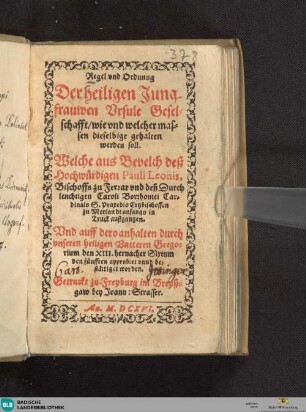 378
Regel vnd Ordnung
Der heiligen Jung-
frauwen Vrsule Gesel-
schafft / wie vnd welcher maß-
sen dieselbige gehalten
werden soll.
Welche aus Bevelch deß
Hochwürdigen Pauli Leonis,
Bischoffs zu Ferrar vnd deß Durch
leuchtigen Caroli Borrhomei Car-
dinals S. Praxedis Ertzbischoffen
zu Meylandt anfangs in
Truck außgangen.
Vnd auff dero anhalten durch
vnseren heiligen Vatteren Grego-
rium den XIII. hernacher Sixtum
den fünfften approbirt vnnd be-
stättiget worden.
Getruckt zu Freyburg im Breyß-
gaw bey Joann: Strasser.
An. M. DCXVI.
BLB
BADISCHE
LANDESBIBLIOTHEK
Baden-Württemberg